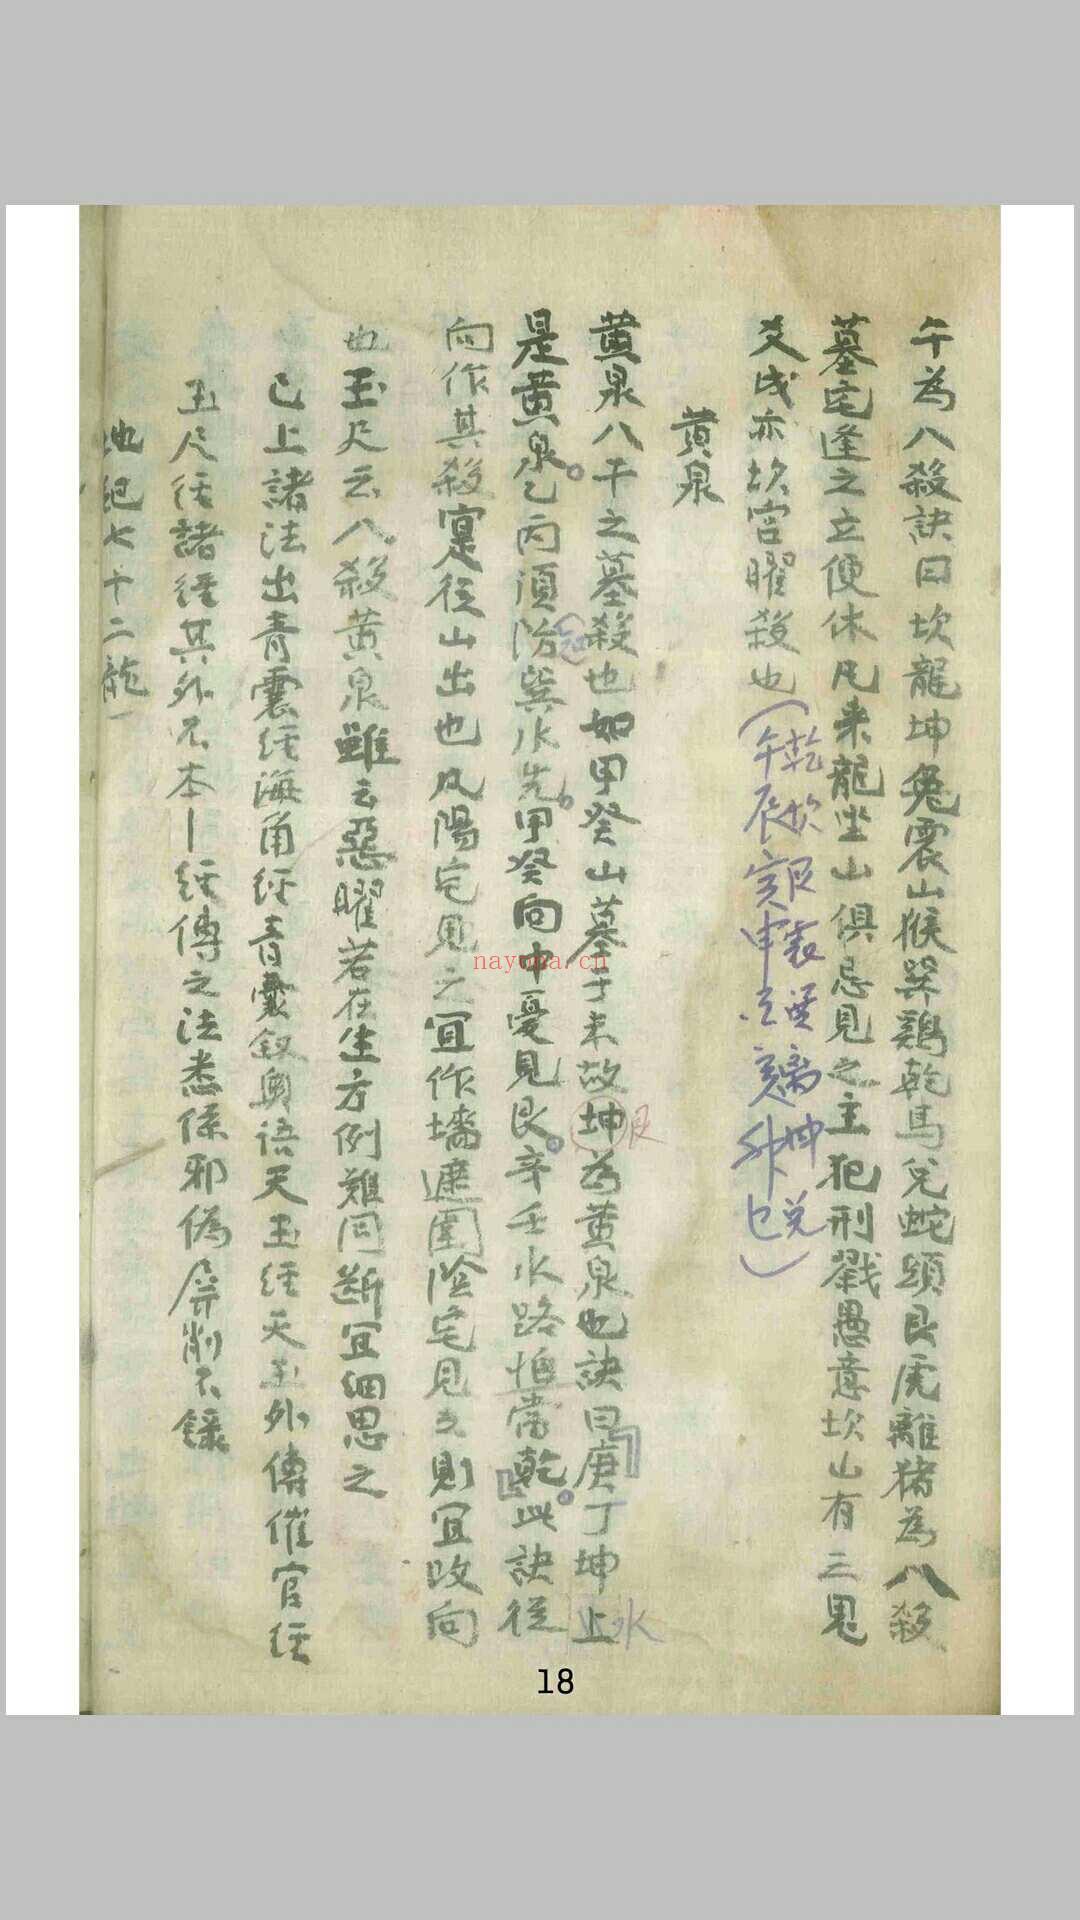 午為八殺訣曰坎龍坤兔震山猴巽鷄乾馬兌蛇頭艮虎離猪為八殺
墓宅逢之立便休凡来龍坐山俱忌見之主犯刑戮愚意坎山有三鬼
爻戌亦坎宮曜殺也
乾坎艮震巽離坤兌
午辰寅申
黄泉
黄泉八干之墓殺也如甲癸山墓于未故坤為黄泉也訣曰庚丁坤上
艮
水
是黄泉乙丙須防巽水先甲癸向中憂見艮辛壬水路怕當乾此訣從
向作其殺寔從山出也凡陽宅見之宜作墻遮圍陰宅見之則宜改向
也玉尺云八殺黄泉雖云惡曜若在生方例難同断宜細思之
已上諸法出青囊經海角經青囊叙奥语天玉經天玉外傳催官經
玉尺經諸經其外不本經傳之法悉係邪偽屏削不錄
地紀七十二龍
nayona.cn
18